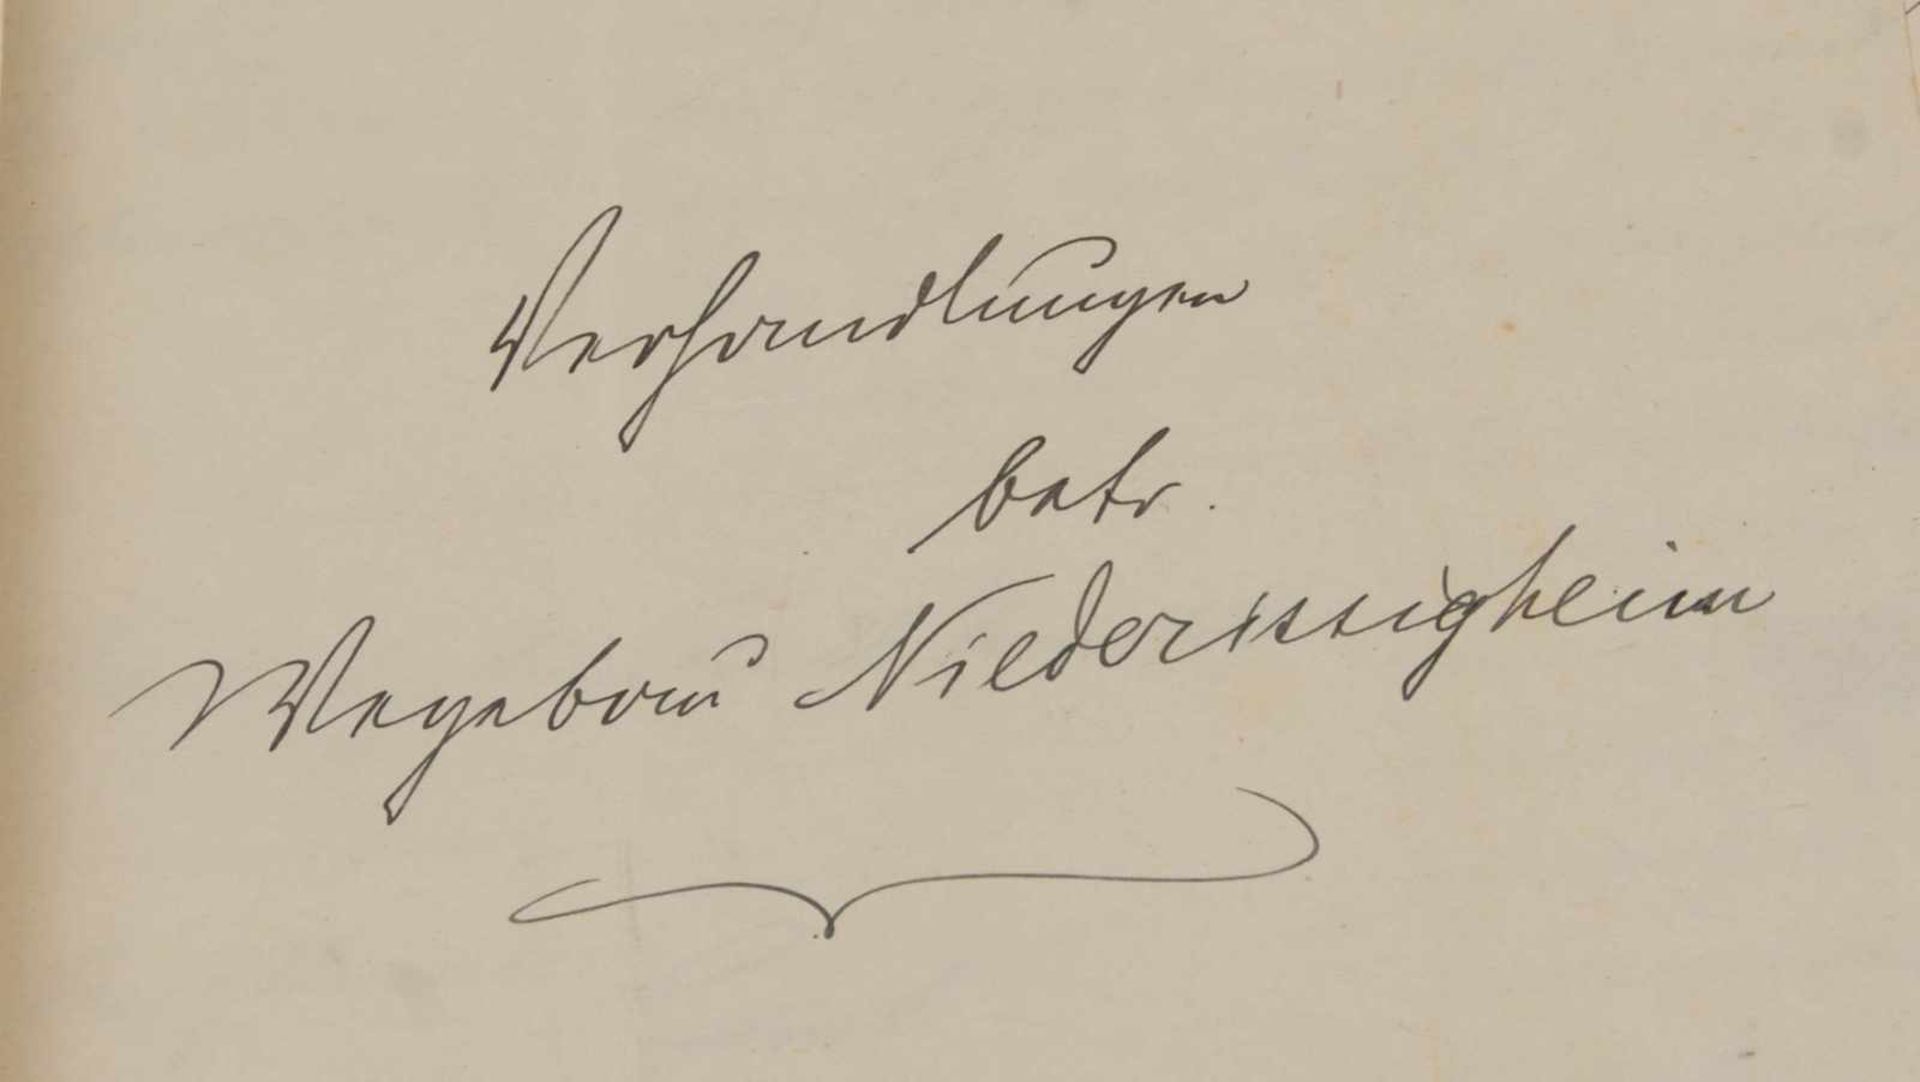 Verhandlungen
betr.
Wegebau Niederissigheim